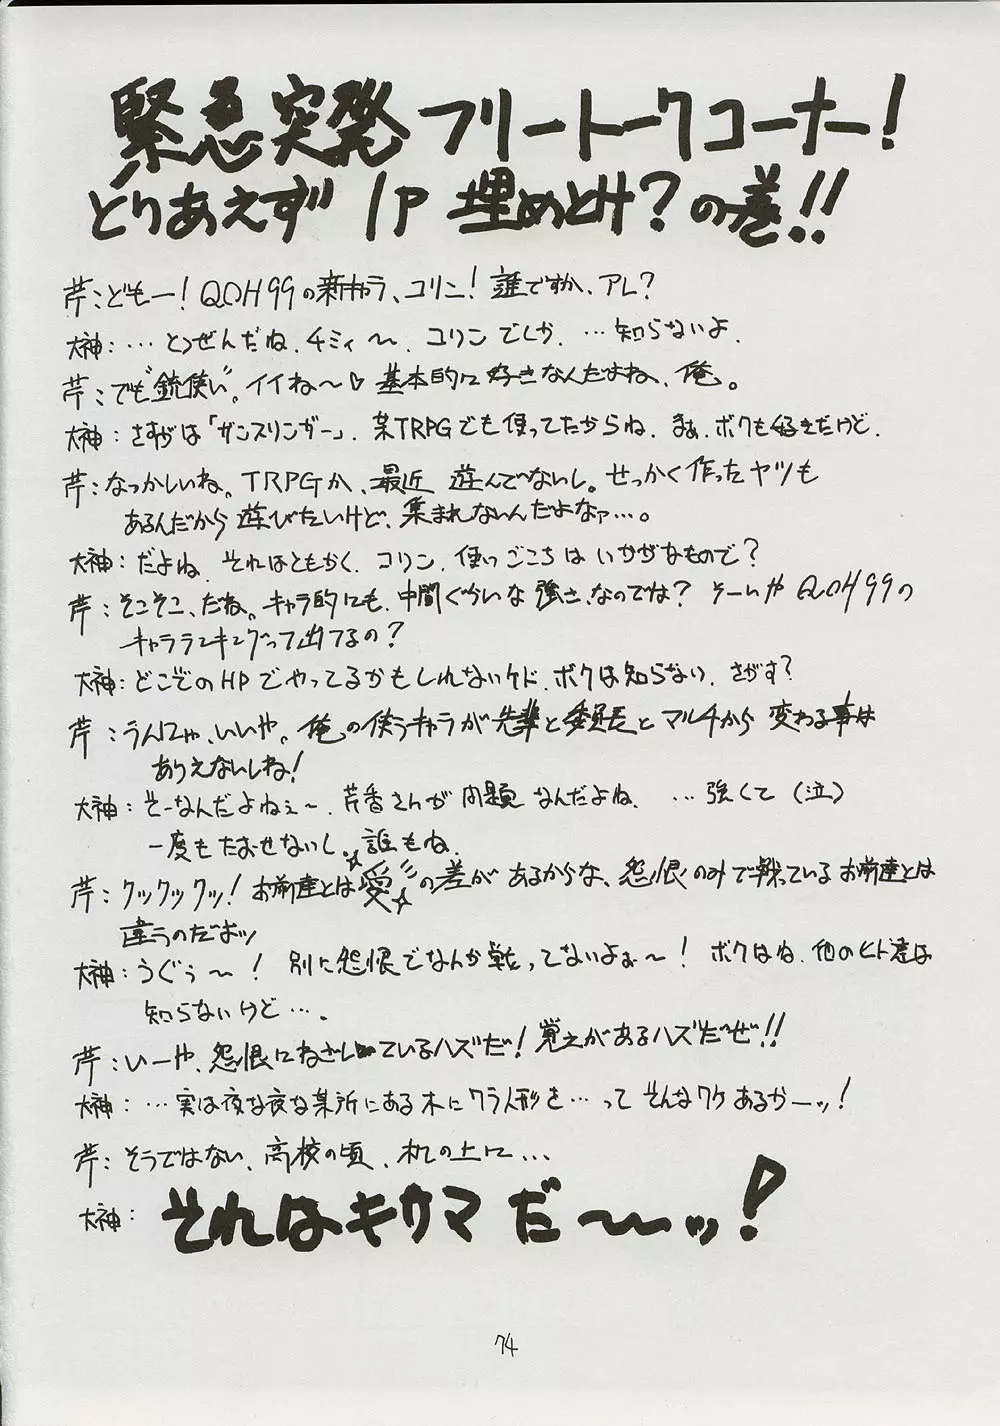 緊急突発フリートークコーナー!
とりあえず 1P 埋めとけ?の巻!!
芹:どもー! QOH99の新キャラ、コリン! 誰ですか、アレ?
大神:…とつぜんだね、チミィ〜。コリンでしか。…知らないよ。
芹:でも"銃使い"。イイね〜♡ 基本的に好きなんだよね、俺。
大神:さすがは「ガンスリンガー」。某TRPGでも使ってたからね。まぁ、ボクも好きだけど。
芹:なつかしいね。TRPGか、最近 遊んでないし。せっかく作ったヤツも
あるんだから遊びたいけど、集まれないんだよなァ…。
大神:だよね。それはともかく、コリン、使いごこちはいかがなもので?
芹:そこそこ、だね。キャラ的にも、中間ぐらいな強さ、なのでは? そーいやQOH99の
キャラランキングって出てるの?
大神:どこぞのHPでやってるかもしれないケド、ボクは知らない。さがす?
芹:うんにゃ、いいや。俺の使うキャラが先輩と委員長とマルチから変わる事は
ありえないしね!
大神:そーなんだよねぇ〜。芹香さんが問題なんだよね。…強くて(泣)
一度もたおせないし、誰もね。
芹:クックックッ! お前達とは☆愛☆の差があるからな、怨恨のみで戦っているお前達とは
違うのだよッ
大神:うぐぅ〜! 別に怨恨でなんか戦ってないよぉ〜! ボクはね、他のヒト達は
知らないけど…。
芹:いーや、怨恨にねざしているハズだ! 覚えがあるハズだぜ!!
大神:…実は夜な夜な某所にある木にワラ人形を…って そんなワケあるかーッ!
芹:そうではない、高校の頃、机の上に…
大神:それはキサマだ〜〜ッ!
74